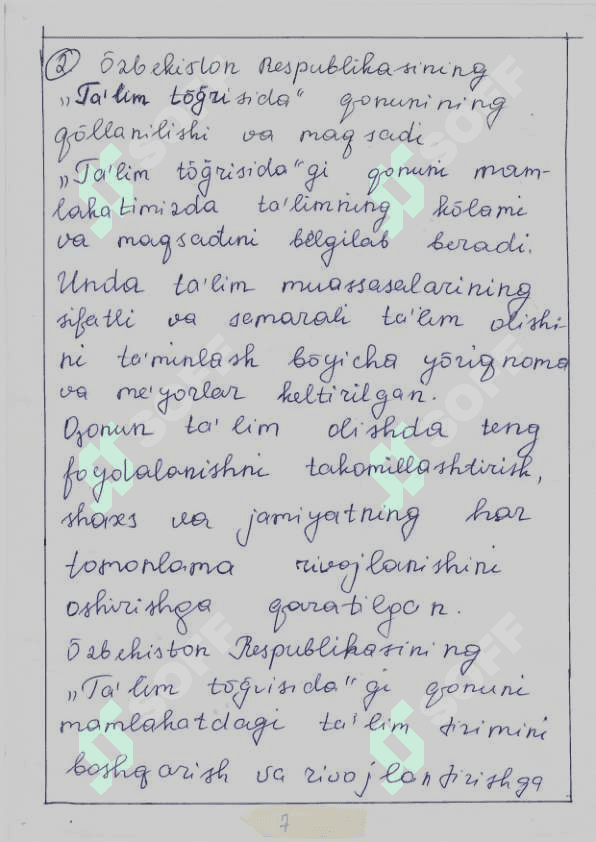 2 Ōzbekiston Respublikasining
„Ta'lim tōğrisida“ qonunining
qōllanilishi va maqsadi
„Ta'lim tōğrisida“gi qonuni mam-
lakatimizda ta'limning kōlami
va maqsadini belgilab beradi.
Unda ta'lim muassasalarining
sifatli va samarali ta'lim olishi-
ni ta'minlash bōyicha yōriqnoma
va me'yorlar keltirilgan.
Qonun ta'lim olishda teng
foydalanishni takomillashtirish,
shaxs va jamiyatning har
tomonlama rivojlanishini
oshirishga qaratilgan.
Ōzbekiston Respublikasining
„Ta'lim tōğrisida“gi qonuni
mamlakatdagi ta'lim tizimini
boshqarish va rivojlantirishga
7
SOFF
SOFF
SOFF
SOFF
SOFF
SOFF